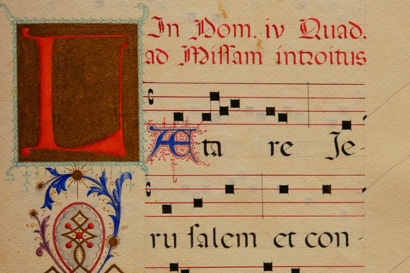 L
In Dom. iv Quad.
ad Miſſam introitus
Æ ta re Je-
ru ſalem et con-